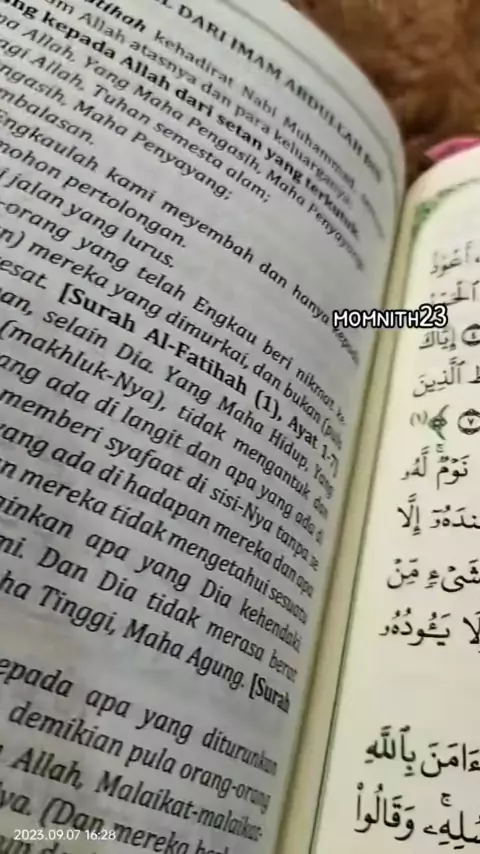 DARI IMAM ABDULLAH BIN
Fatihah kehadirat Nabi Muhammad
Allah atasnya dan para keluarganya.
kepada Allah dari setan yang terkutuk.
Allah, Yang Maha Pengasih, Maha Penyayang
Allah, Tuhan semesta alam;
Maha Penyayang;
Engkaulah kami meyembah dan hanya kepada
mohon pertolongan.
jalan yang lurus.
orang yang telah Engkau beri nikmat
mereka yang dimurkai, dan bukan (pula
esat. [Surah Al-Fatihah (1), Ayat 1-7]
selain Dia. Yang Maha Hidup, Yang
(makhluk-Nya), tidak mengantuk dan
ang ada di langit dan apa yang ada di
memberi syafaat di sisi-Nya tanpa se
yang ada di hadapan mereka dan apa
mereka tidak mengetahui sesuatu
ainkan apa yang Dia kehendaki
mi. Dan Dia tidak merasa berat
ha Tinggi, Maha Agung. [Surah
epada apa yang diturunkan
demikian pula orang-orang
Allah, Malaikat-malaikat-
ya. (Dan mereka
MOMNITH23
إِيَّاكَ
ٱلَّذِينَ
(١)
نَوْمٌ لَّهُۥ
إِلَّا
شَىْءٍ مِّنْ
يَـُٔودُهُۥ
ءَامَنَ بِٱللَّهِ
وَقَالُوا۟
2023.09.07 16:28